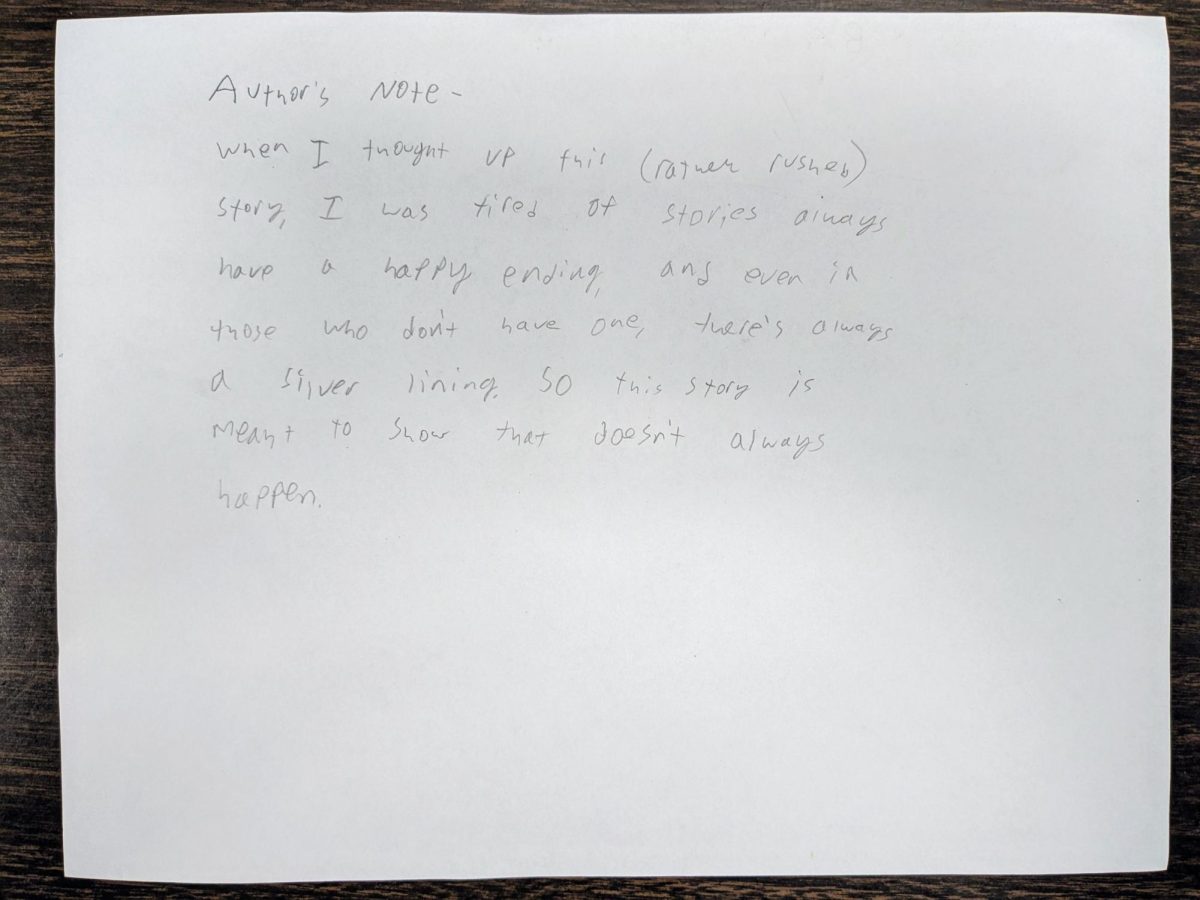 Author's Note -
When I thought up this (rather rushed)
story, I was tired of stories always
have a happy ending, and even in
those who don't have one, there's always
a silver lining. So this story is
meant to show that doesn't always
happen.